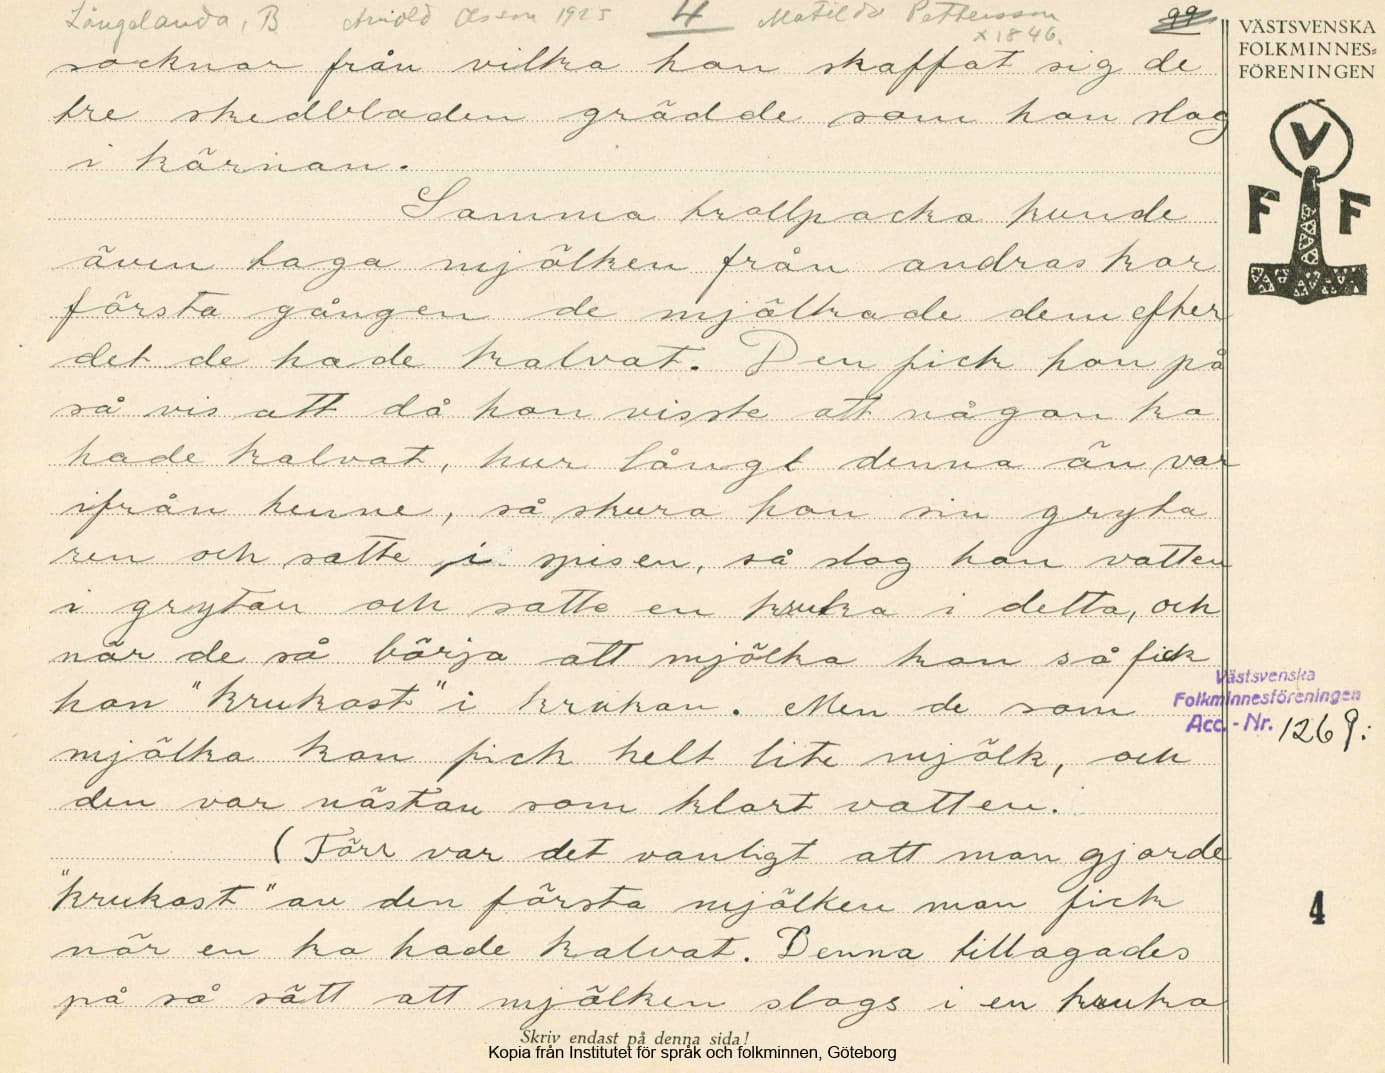 Långelanda, B. Arnold Olsson 1925 4 Matilda Pettersson 99
x 1846.
VÄSTSVENSKA
FOLKMINNES=
FÖRENINGEN
V
F F
socknar från vilka hon skaffat sig de
tre skedbladen grädde som hon slog
i kärnan.
Samma trollpacka kunde
även taga mjölken från andras kor
första gången de mjölkade dem efter
det de hade kalvat. Den fick hon på
så vis att då hon visste att någon ko
hade kalvat, hur långt denna än var
ifrån henne, så skura hon sin gryta
ren och satte i spisen, så slog hon vatten
i grytan och satte en kruka i detta, och
när de så börja att mjölka kon så fick
hon "krukost" i krukan. Men de som
mjölka kon fick helt lite mjölk, och
den var nästan som klart vatten.
(Förr var det vanligt att man gjorde
"krukost" av den första mjölken man fick
när en ko hade kalvat. Denna tillagades
på så sätt att mjölken slogs i en kruka
Västsvenska
Folkminnesföreningen
Acc. - Nr. 1269:
4
Skriv endast på denna sida!
Kopia från Institutet för språk och folkminnen, Göteborg